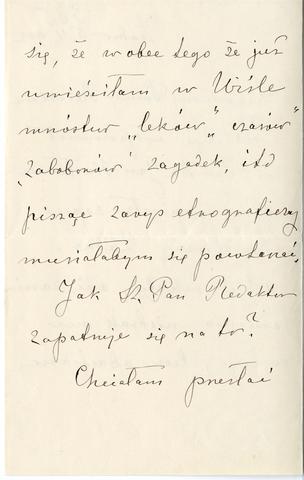 się, że wobec tego że już
umieściłam w Wiśle
mnóstwo „leków„ czarów”
„zabobonów” zagadek, itd
pisząc zarys etnograficzny
musiałabym się powtarzać.
Jak Sz. Pan Redaktor
zapatruje się na to?
Chciałam przesłać